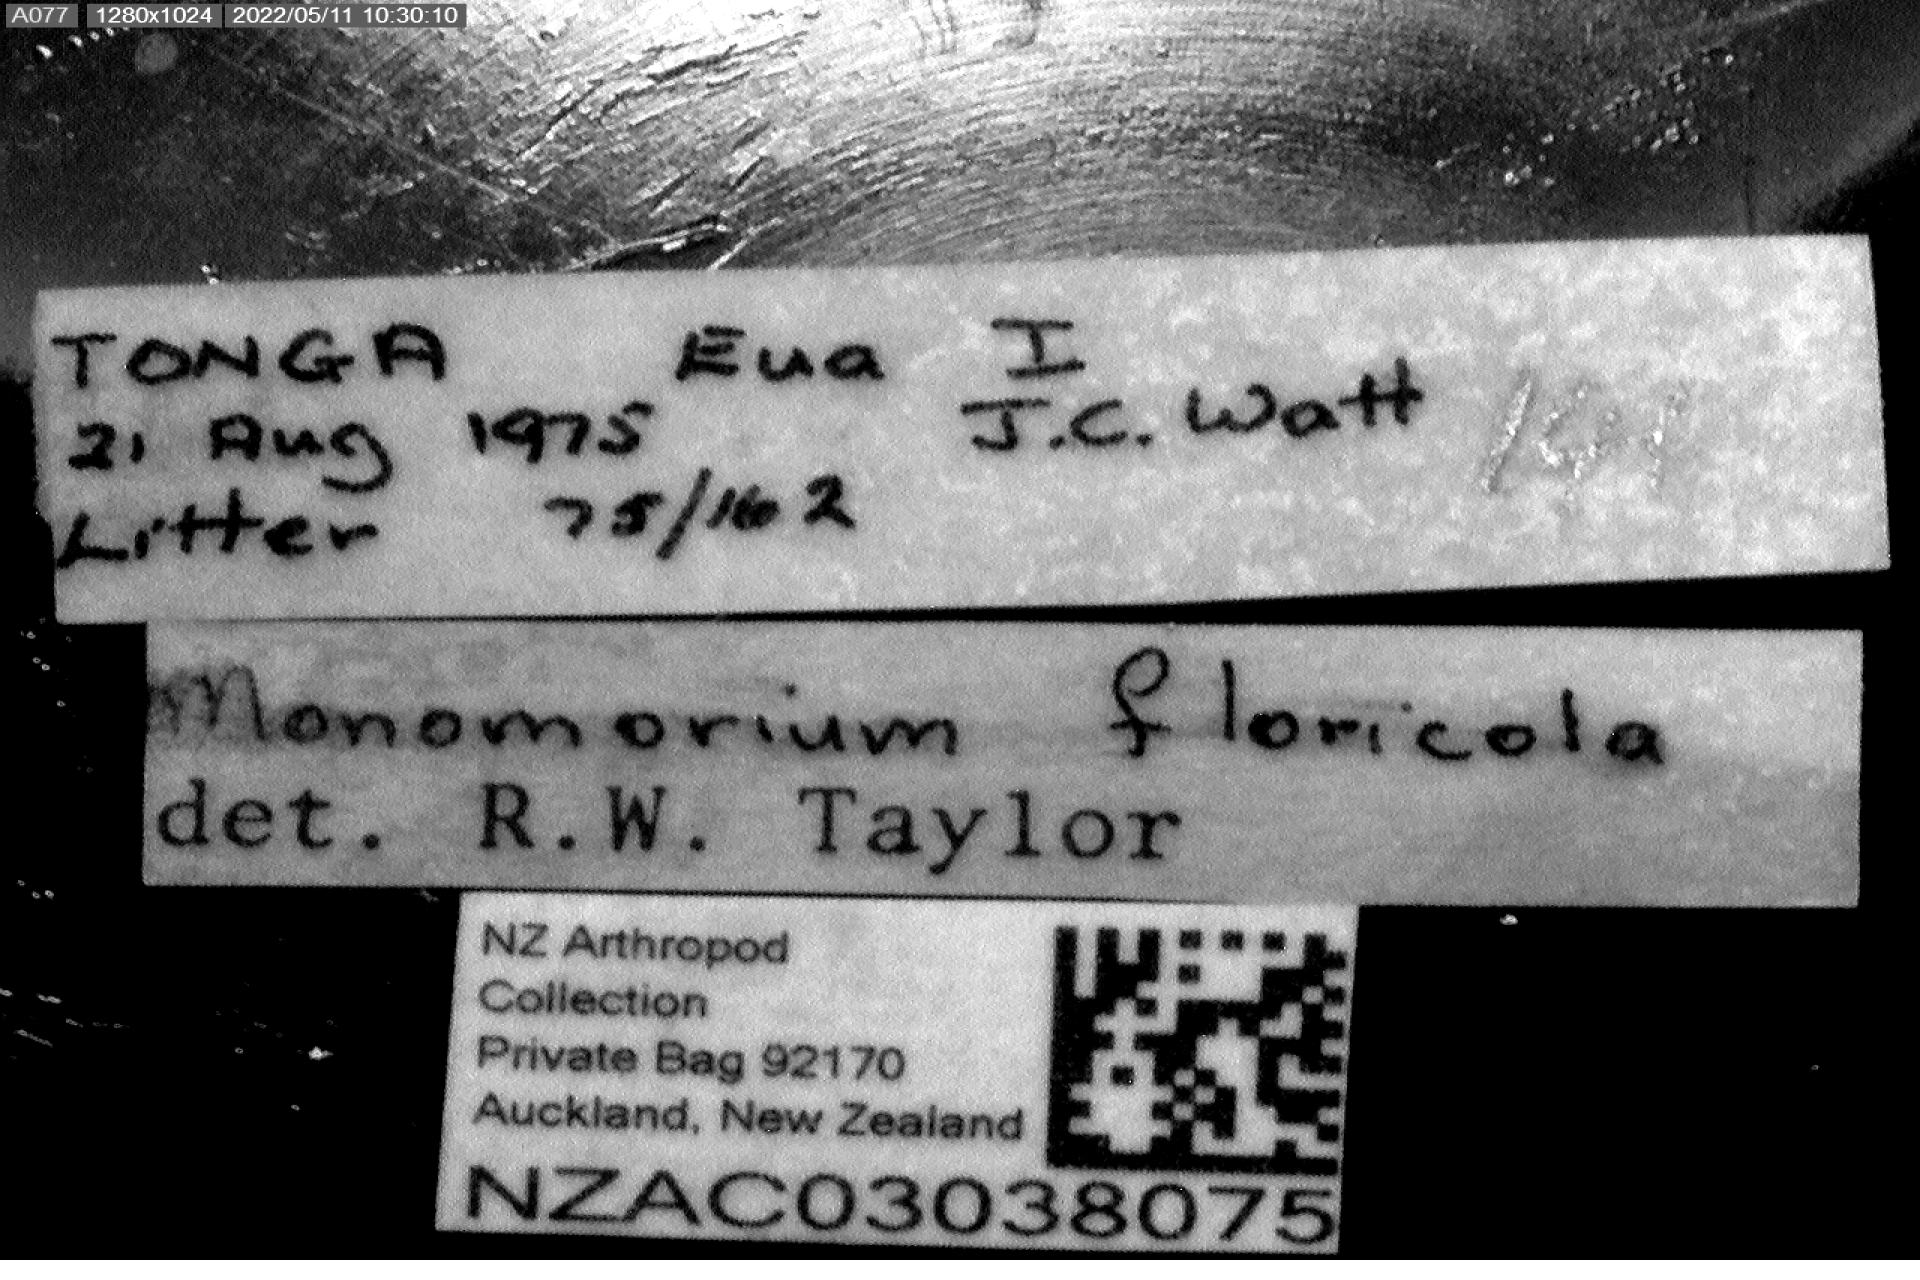 A077 1280x1024 2022/05/11 10:30:10
TONGA Eua I
21 Aug 1975 J.C. Watt
Litter 75/162
Monomorium floricola
det. R.W. Taylor
NZ Arthropod
Collection
Private Bag 92170
Auckland, New Zealand
NZAC03038075